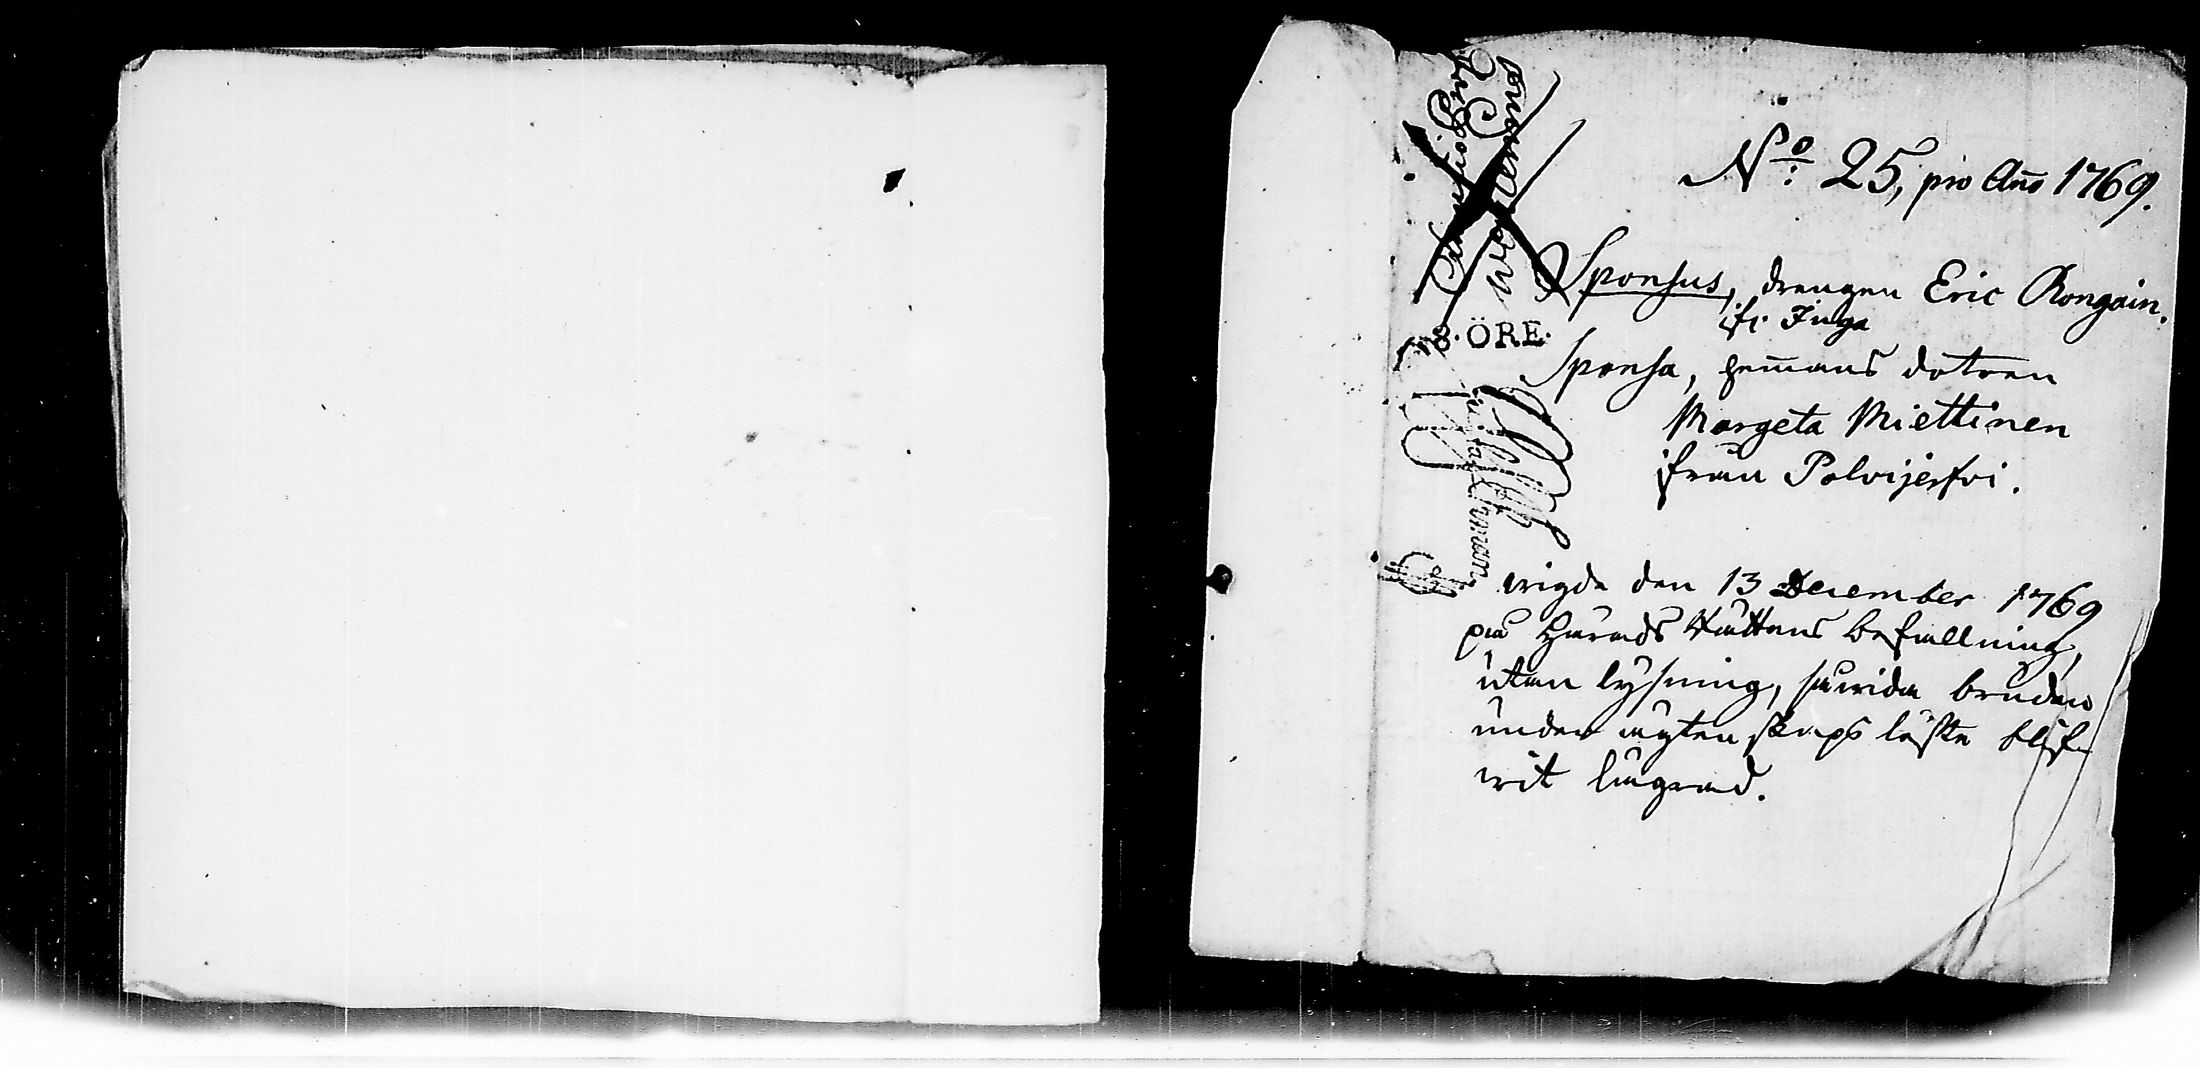 No: 25, pro Año 1769.
Sponsus, drengen Eric Rongain.
fr. Juga
Sponsa, hem̄ans dotren
Margeta Miettinen
ifrån Polvijerfvi.
8. ÖRE.
wigde den 13 December 1769
på Härads Rättens befallning,
utan lysning, såwida bruden
under ägtenskaps löfte blif-
wit lägrad.